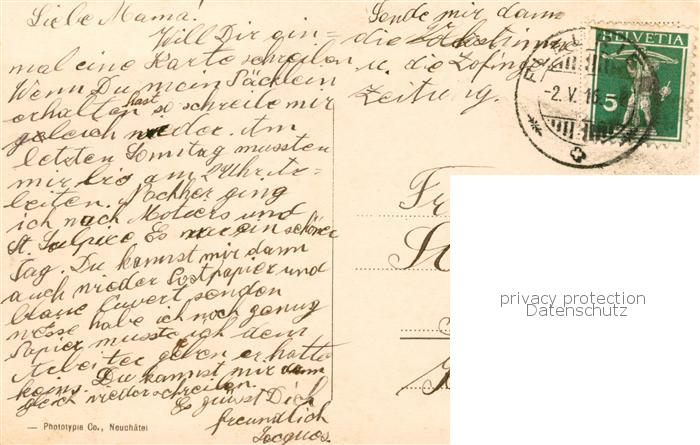 Liebe Mama!
Will Dir ein=
mal eine Karte schreiben
Wenn Du mein Päcklein
erhalten hast so schreibe mir
gleich wieder. Am
letzten Sonntag mussten
mir bis am 2 Uhr ar=
beiten. Nachher ging
ich nach Motiers und
St. Sulpice Es war ein schöner
Tag. Du kannst mir dann
auch wieder Postpapier und
blaue Cuvert senden
habe ich noch genug
Papier musste ich dem
Arbeiter geben er hatte
keins. Du kannst mir dann
gleich wieder schreiben.
Es grüsst Dich
freundlich
Jacques.
Sende mir dann
die
u. die Zofinger
Zeitung.
HELVETIA
5
2.V.16.
Fr
privacy protection
Datenschutz
— Phototypie Co., Neuchâtel